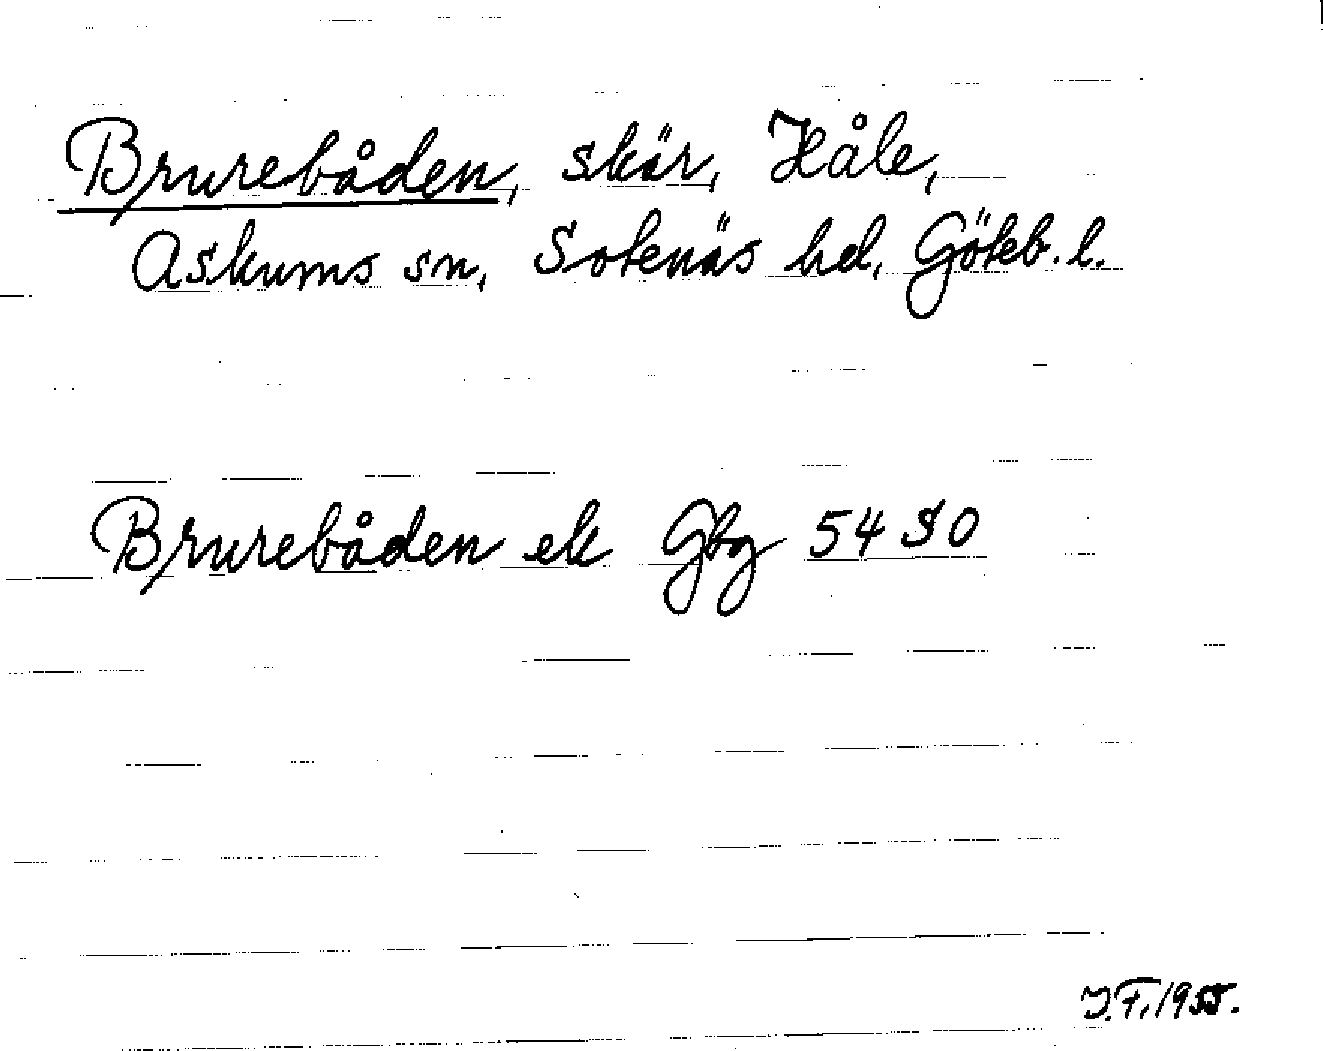 Brurebåden, skär, Håle,
Askums sn, Sotenäs hd, Göteb. l.
Brurebåden ek Gbg 54 SO
J.F. 1955.